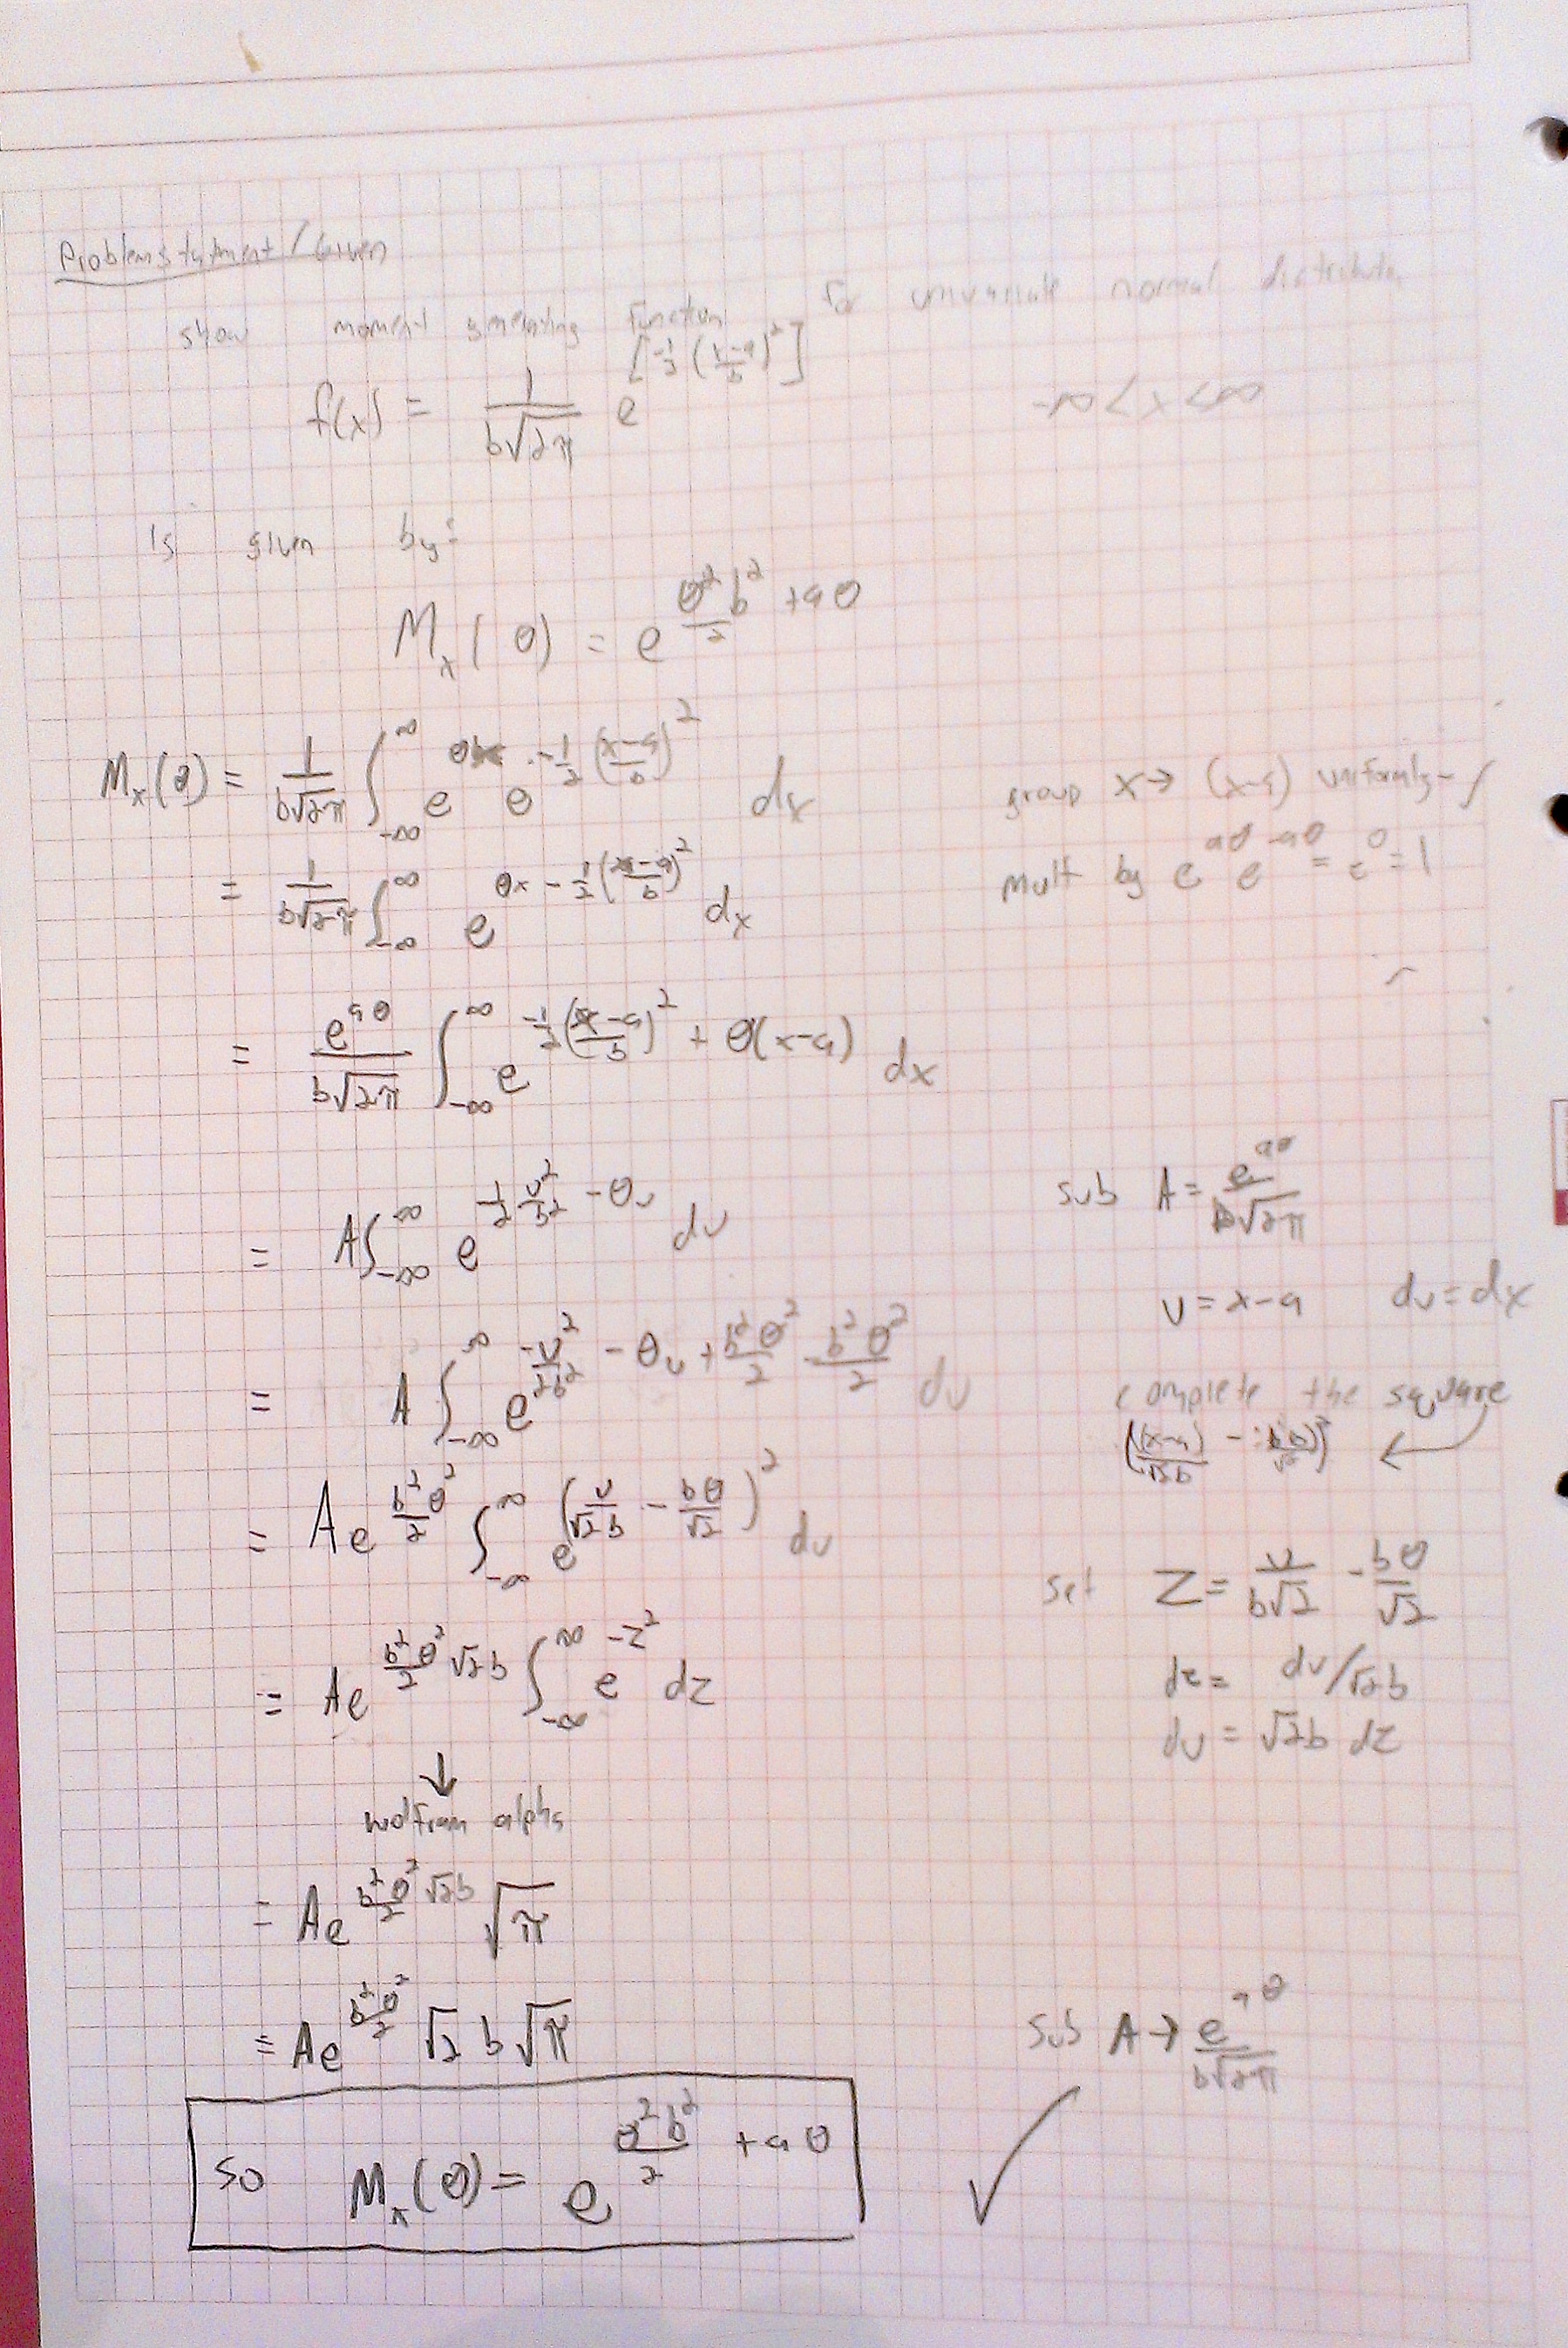 Problem statment / Given
show moment generating function for univariate normal distribution
f(x) = 1/(b√2π) e^[-1/2 ((x-a)/b)^2] -∞ < x < ∞
is given by:
M_x(θ) = e^(θ^2 b^2/2 + aθ)
M_x(θ) = 1/(b√2π) ∫_-∞^∞ e^θx e^(-1/2 ((x-a)/b)^2) dx group x → (x-a) uniformly
= 1/(b√2π) ∫_-∞^∞ e^(θx - 1/2 ((x-a)/b)^2) dx mult by e^aθ e^-aθ = e^0 = 1
= e^aθ/(b√2π) ∫_-∞^∞ e^(-1/2 ((x-a)/b)^2 + θ(x-a)) dx
= A ∫_-∞^∞ e^(-1/2 u^2/b^2 - θu) du sub A = e^aθ/(b√2π)
u = x-a du = dx
= A ∫_-∞^∞ e^(-u^2/2b^2 - θu + b^2θ^2/2 - b^2θ^2/2) du complete the square
((x-a)/(√2b) - bθ/√2)^2
= A e^(b^2θ^2/2) ∫_-∞^∞ e^(u/(√2b) - bθ/√2)^2 du
set Z = u/(b√2) - bθ/√2
= A e^(b^2θ^2/2) √2b ∫_-∞^∞ e^-z^2 dz dz = du/√2b
du = √2b dz
↓
wolfram alpha
= A e^(b^2θ^2/2) √2b √π
= A e^(b^2θ^2/2) √2 b √π sub A → e^aθ/(b√2π)
so M_x(θ) = e^(θ^2 b^2/2 + aθ) ✓